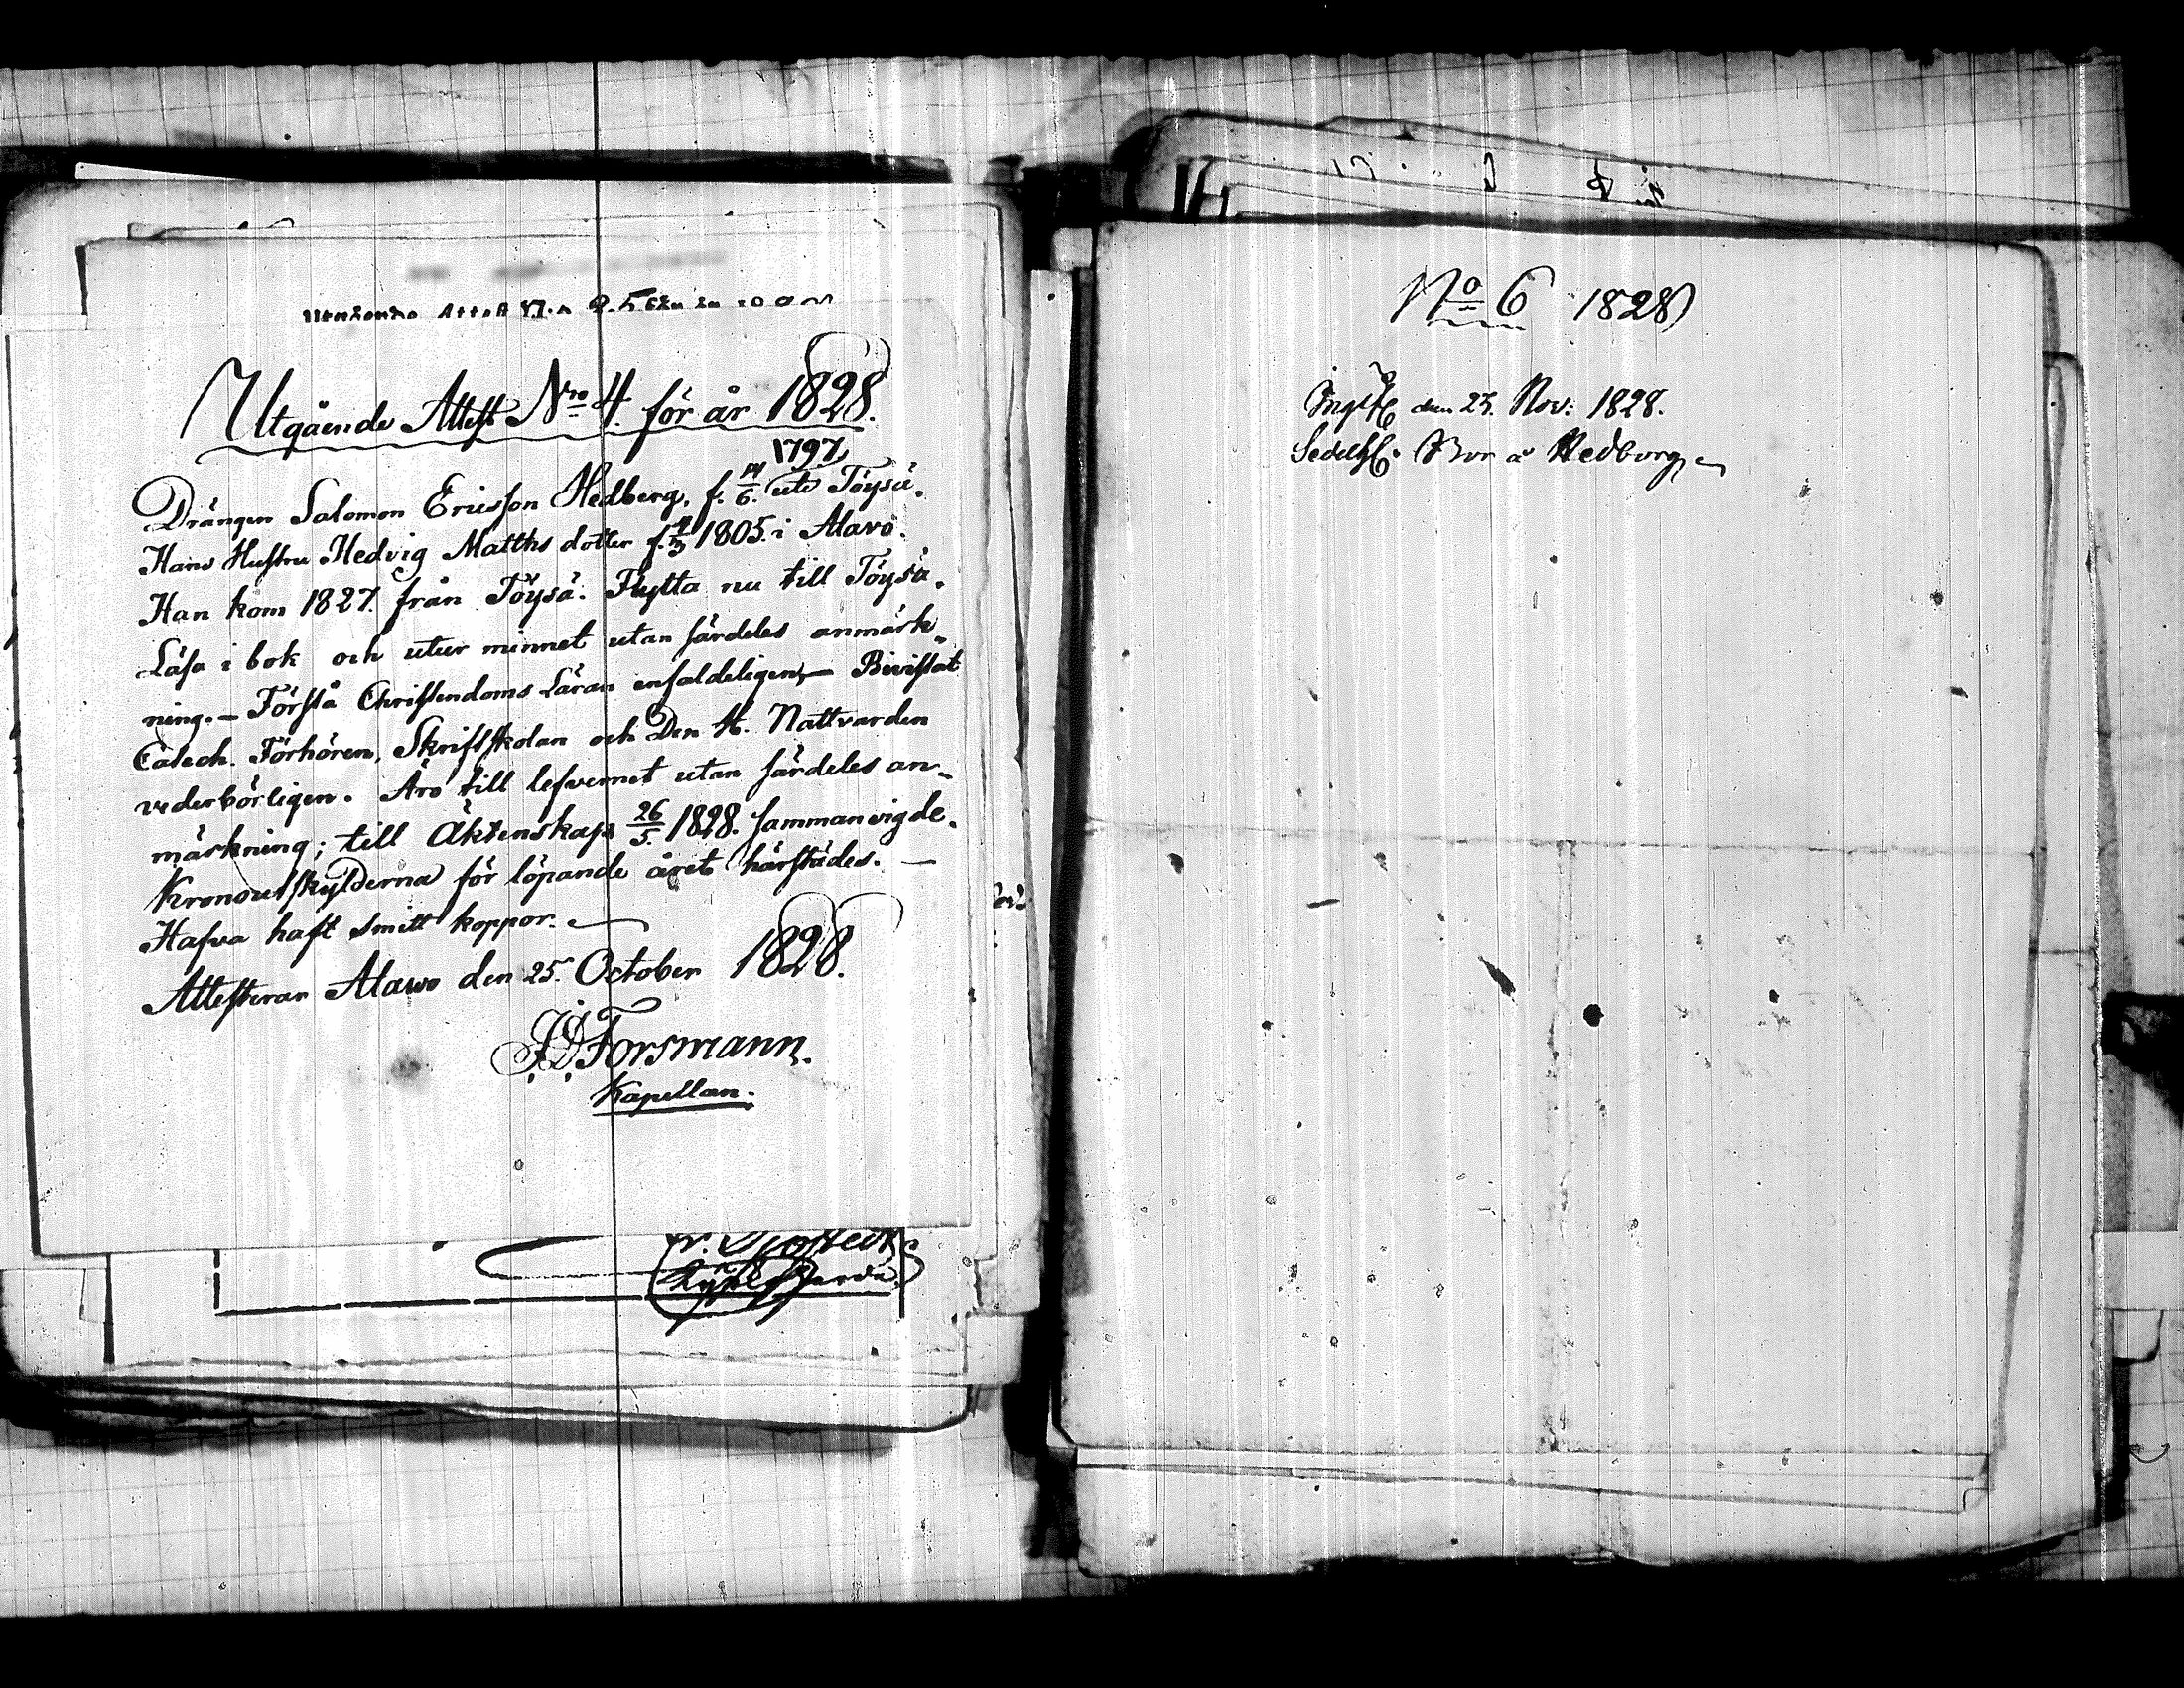 Utgående Attest Nro 4. för år 1828.
1797
Drängen Salomon Ericsson Hedberg, f. 14/6. uti Töysä.
Hans Hustru Hedvig Matths dotter f. 1805. i Alavo.
Han kom 1827. från Töysä. Flytta nu till Töysä.
Läsa i bok och utur minnet utan särdeles anmärk-
ning. - Förstå Christendoms Läran enfaldeligen, - Bivistat
Catech. Förhören, Skriftskolan och Den H. Nattvarden
vederbörligen. Äro till lefvernet utan särdeles an-
märkning; till Äktenskap 26/5. 1828. sammanvigde.
Kronoutskylderna för löpande året härstädes. -
Hafva haft smitt koppor.
Attesterar Alawo den 25. October 1828.
J.D. Forsmann.
Kapellan.
No 6 1828
den 23. Nov: 1828.
Bor a Hedborg